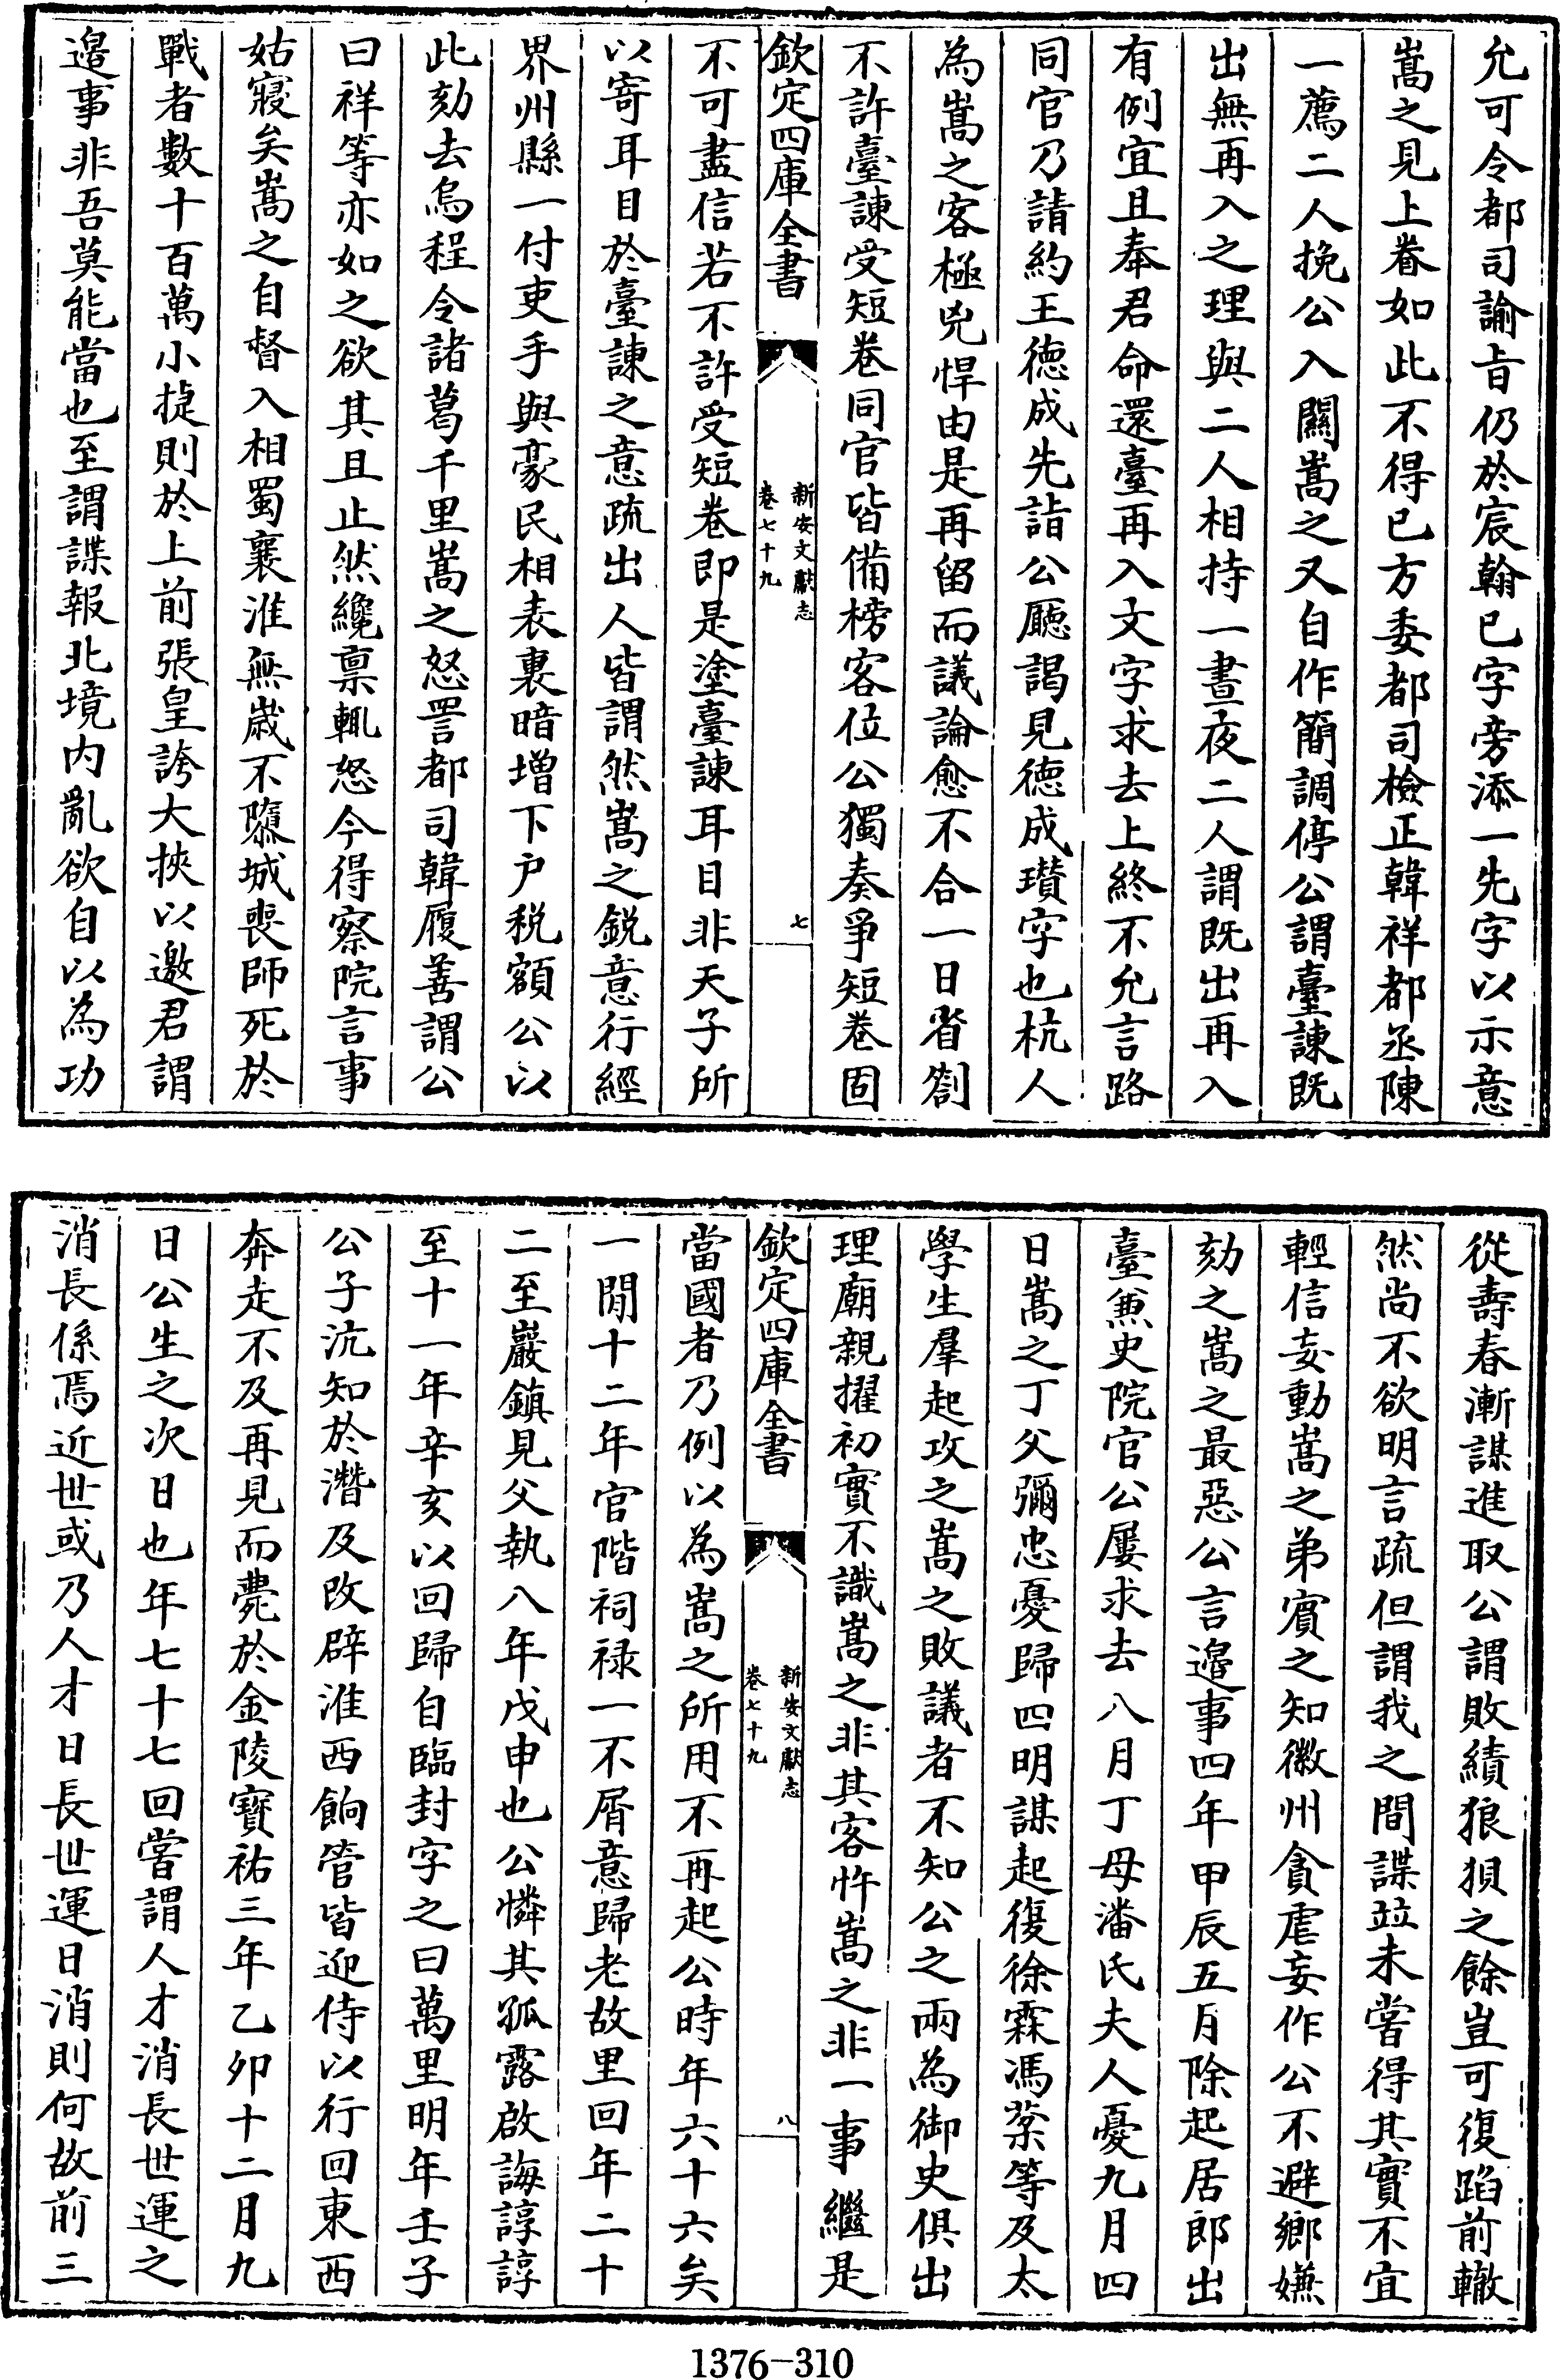 允可令都司諭旨仍於宸翰已字旁添一先字以示意
嵩之見上眷如此不得已方委都司檢正韓祥都丞陳
一薦二人挽公入關嵩之又自作簡調停公謂臺諫既
出無再入之理與二人相持一晝夜二人謂既出再入
有例宜且奉君命還臺再入文字求去上終不允言路
同官乃請約王徳成先詣公廳謁見徳成瓚字也杭人
為嵩之客極兇悍由是再留而議論愈不合一日省劄
不許臺諫受短卷同官皆備榜客位公獨奏爭短卷固
欽定四庫全書
新安文獻志
卷七十九
七
不可盡信若不許受短卷即是塗臺諫耳目非天子所
以寄耳目於臺諫之意疏出人皆謂然嵩之銳意行經
界州縣一付吏手與豪民相表裏暗增下户税額公以
此劾去烏程令諸葛千里嵩之怒詈都司韓履善謂公
曰祥等亦如之欲其且止然纔禀輒怒今得察院言事
姑寢矣嵩之自督入相蜀襄淮無歲不隳城喪師死於
戰者數十百萬小捷則於上前張皇誇大挾以邀君謂
邉事非吾莫能當也至謂諜報北境内亂欲自以為功
從壽春漸謀進取公謂敗績狼狽之餘豈可復蹈前轍
然尚不欲明言疏但謂我之間諜竝未嘗得其實不宜
輕信妄動嵩之弟賔之知徽州貪虐妄作公不避鄉嫌
劾之嵩之最惡公言邉事四年甲辰五月除起居郎出
臺兼史院官公屢求去八月丁母潘氏夫人憂九月四
日嵩之丁父彌忠憂歸四明謀起復徐霖馮棻等及太
學生羣起攻之嵩之敗議者不知公之兩為御史俱出
理廟親擢初實不識嵩之非其客忤嵩之非一事繼是
欽定四庫全書
新安文獻志
卷七十九
八
當國者乃例以為嵩之所用不再起公時年六十六矣
一閒十二年官階祠禄一不屑意歸老故里回年二十
二至巖鎮見父執八年戊申也公憐其孤露啟誨諄諄
至十一年辛亥以回歸自臨封字之曰萬里明年壬子
公子沆知於潛及改辟淮西餉管皆迎侍以行回東西
奔走不及再見而薨於金陵寶祐三年乙卯十二月九
日公生之次日也年七十七回嘗謂人才消長世運之
消長係焉近世或乃人才日長世運日消則何故前三
1376-310